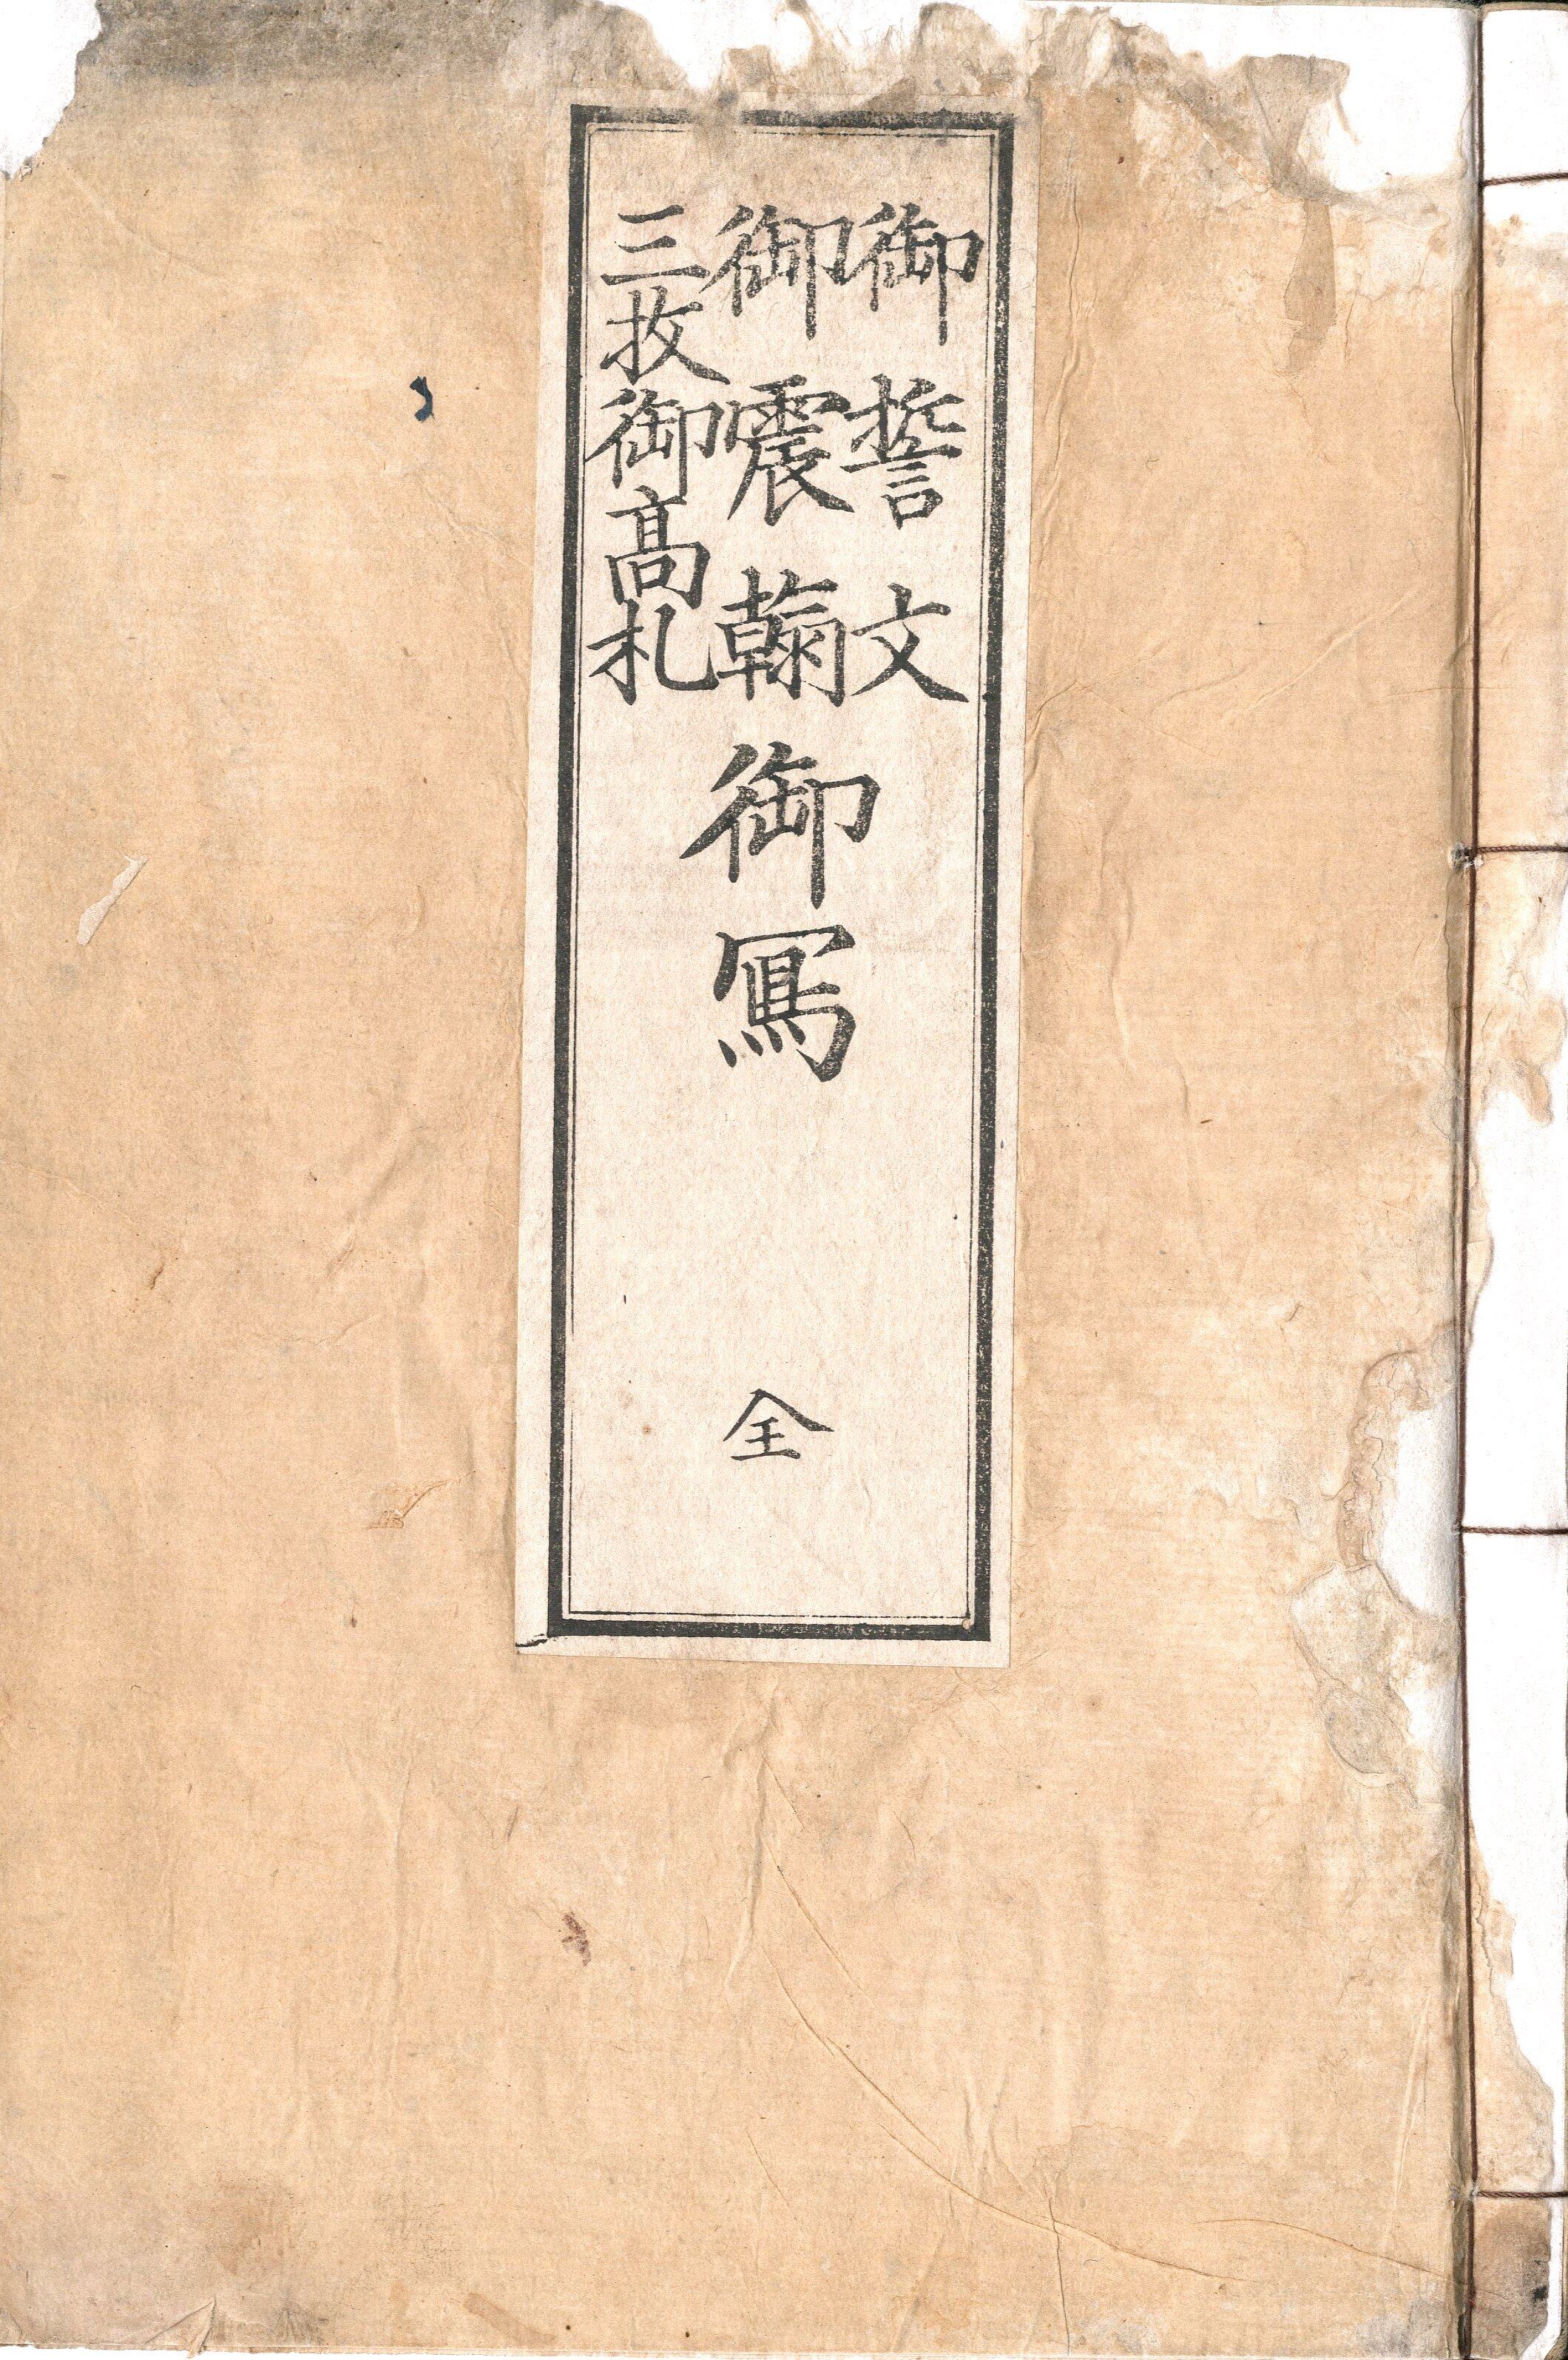 御誓文
御震翰
三枚御高札
御寫
全